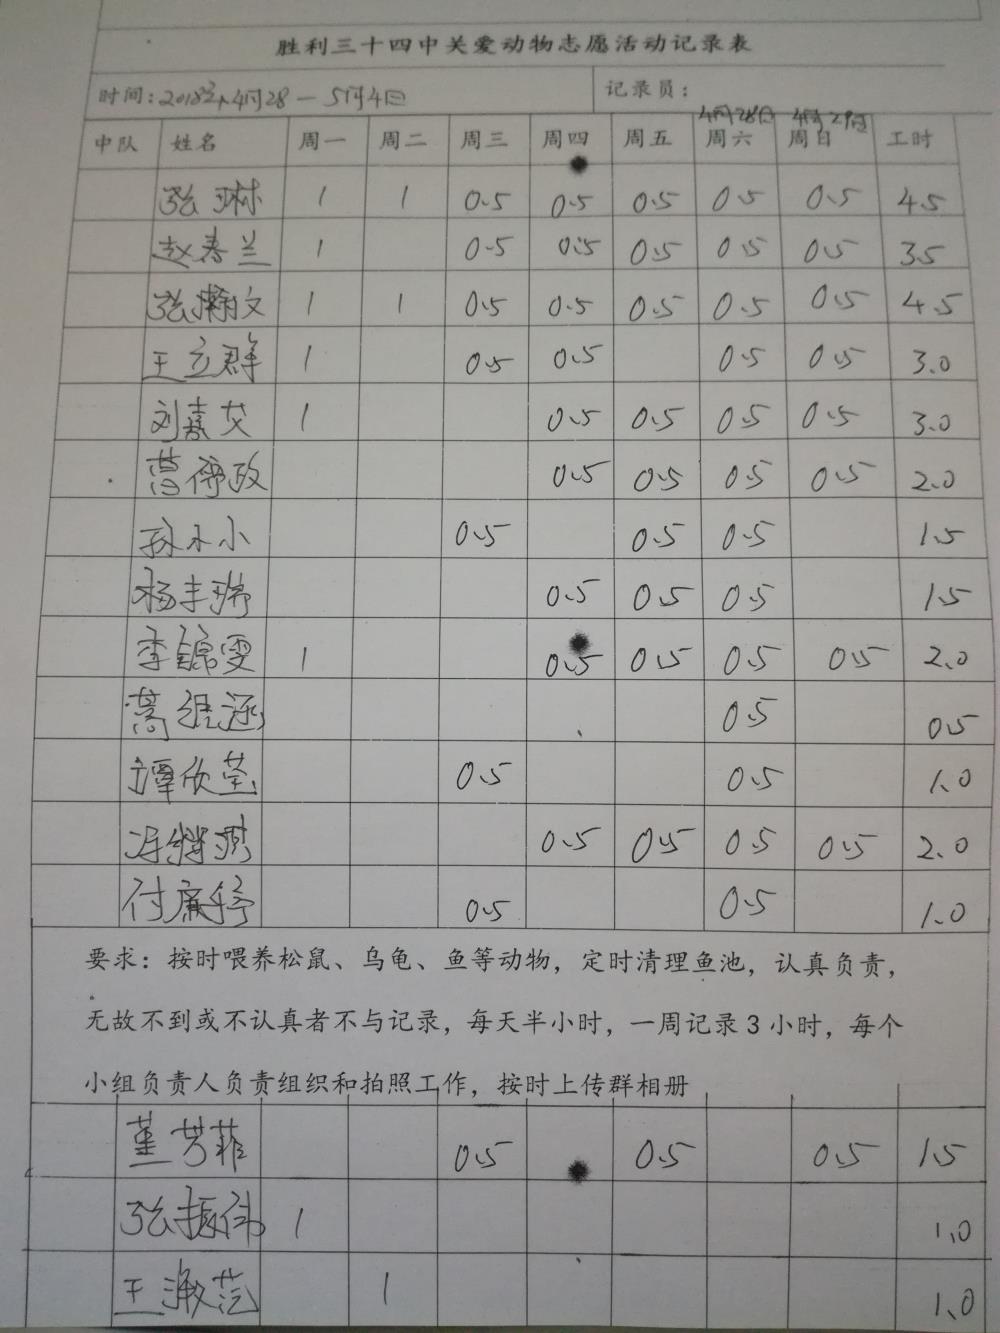 胜利三十四中关爱动物志愿活动记录表
时间：2018年4月28－5月4日 记录员：
4月28日 4月29日
中队 姓名 周一 周二 周三 周四 周五 周六 周日 工时
张琳 1 1 0.5 0.5 0.5 0.5 0.5 4.5
赵春兰 1 0.5 0.5 0.5 0.5 0.5 3.5
张瀚文 1 1 0.5 0.5 0.5 0.5 0.5 4.5
王立群 1 0.5 0.5 0.5 0.5 3.0
刘嘉艾 1 0.5 0.5 0.5 0.5 3.0
0.5 0.5 0.5 0.5 2.0
孙小 0.5 0.5 0.5 1.5
杨丰瑞 0.5 0.5 0.5 1.5
李锦雯 1 0.5 0.5 0.5 0.5 2.0
0.5 0.5
谭欣莹 0.5 0.5 1.0
0.5 0.5 0.5 0.5 2.0
付 0.5 0.5 1.0
要求：按时喂养松鼠、乌龟、鱼等动物，定时清理鱼池，认真负责，
无故不到或不认真者不与记录，每天半小时，一周记录3小时，每个
小组负责人负责组织和拍照工作，按时上传群相册
董芳菲 0.5 0.5 0.5 1.5
张振伟 1 1.0
王淑范 1 1.0